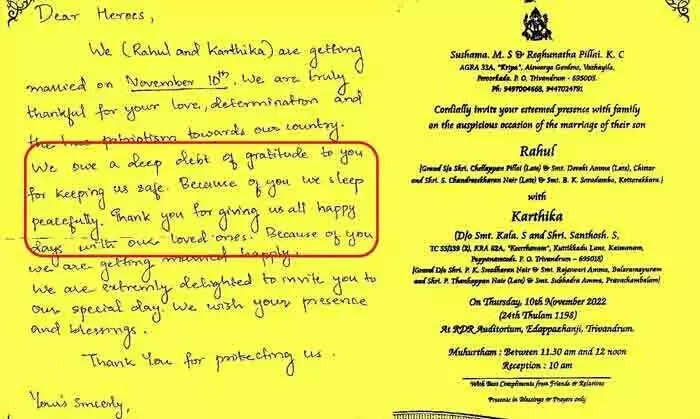 Dear Heroes,
We (Rahul and Karthika) are getting
married on November 10th. We are truly
thankful for your love, determination and
the true patriotism towards our country.
We owe a deep debt of gratitude to you
for keeping us safe. Because of you we sleep
peacefully. Thank you for giving us all happy
days with our loved ones. Because of you
we are getting married happily.
We are extremely delighted to invite you to
our special day. We wish your presence
and blessings.
Thank You for protecting us.
Your's Sincerely,
Sushama. M. S & Reghunatha Pillai. K. C
AGRA 33A, "Kripa", Aiswarya Gardens, Vazhayila,
Peroorkada. P. O, Trivandrum - 695005.
Ph: 9497004668, 9447024791
Cordially invite your esteemed presence with family
on the auspicious occasion of the marriage of their son
Rahul
(Grand S/o Shri. Chellappan Pillai (Late) & Smt. Devaki Amma (Late), Chittar
and Shri. S. Chandrasekharan Nair (Late) & Smt. B. K. Saradamba, Kottarakkara.)
with
Karthika
(D/o Smt. Kala. S and Shri. Santhosh. S,
TC 55/139 (2), KRA 62A, "Keerthanam", Kuttikkadu Lane, Kaimanam,
Pappanamcode. P. O, Trivandrum - 695018)
(Grand D/o Shri. P. K. Sreedharan Nair & Smt. Rajeswari Amma, Balaramapuram
and Shri. P. Thankappan Nair (Late) & Smt. Subhadra Amma, Pravachambalam)
On Thursday, 10th November 2022
(24th Thulam 1198)
At RDR Auditorium, Edappazhanji, Trivandrum.
Muhurtham : Between 11.30 am and 12 noon
Reception : 10 am
With Best Compliments from Friends & Relatives
Presents in Blessings & Prayers only